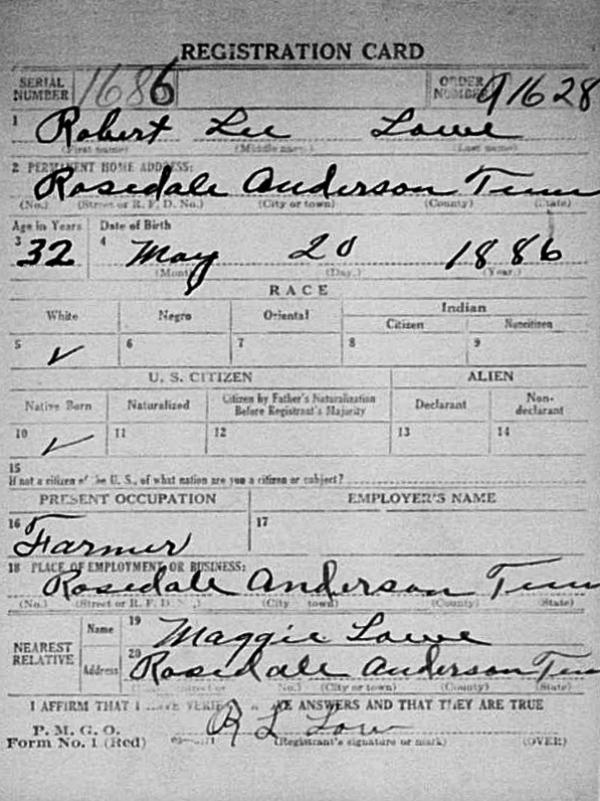 REGISTRATION CARD
SERIAL NUMBER 1686 ORDER NUMBER A1628
1 Robert Lee Lowe
(First name) (Middle name) (Last name)
2 PERMANENT HOME ADDRESS:
Rosedale Anderson Tenn
(No.) (Street or R. F. D. No.) (City or town) (County) (State)
Age in Years Date of Birth
3 32 4 May 20 1886
(Month) (Day) (Year)
RACE
White Negro Oriental Indian
Citizen Noncitizen
5 ✓ 6 7 8 9
U. S. CITIZEN ALIEN
Native Born Naturalized Citizen by Father's Naturalization Before Registrant's Majority Declarant Non-declarant
10 ✓ 11 12 13 14
15
If not a citizen of the U. S., of what nation are you a citizen or subject?
PRESENT OCCUPATION EMPLOYER'S NAME
16 Farmer 17
18 PLACE OF EMPLOYMENT OR BUSINESS:
Rosedale Anderson Tenn
(No.) (Street or R. F. D. No.) (City or town) (County) (State)
NEAREST RELATIVE
Name 19 Maggie Lowe
Address 20 Rosedale Anderson Tenn
No.) (City or town) (County) (State)
I AFFIRM THAT I HAVE VERIFIED ANSWERS AND THAT THEY ARE TRUE
P. M. G. O.
Form No. 1 (Red) R L Low
(Registrant's signature or mark) (OVER)